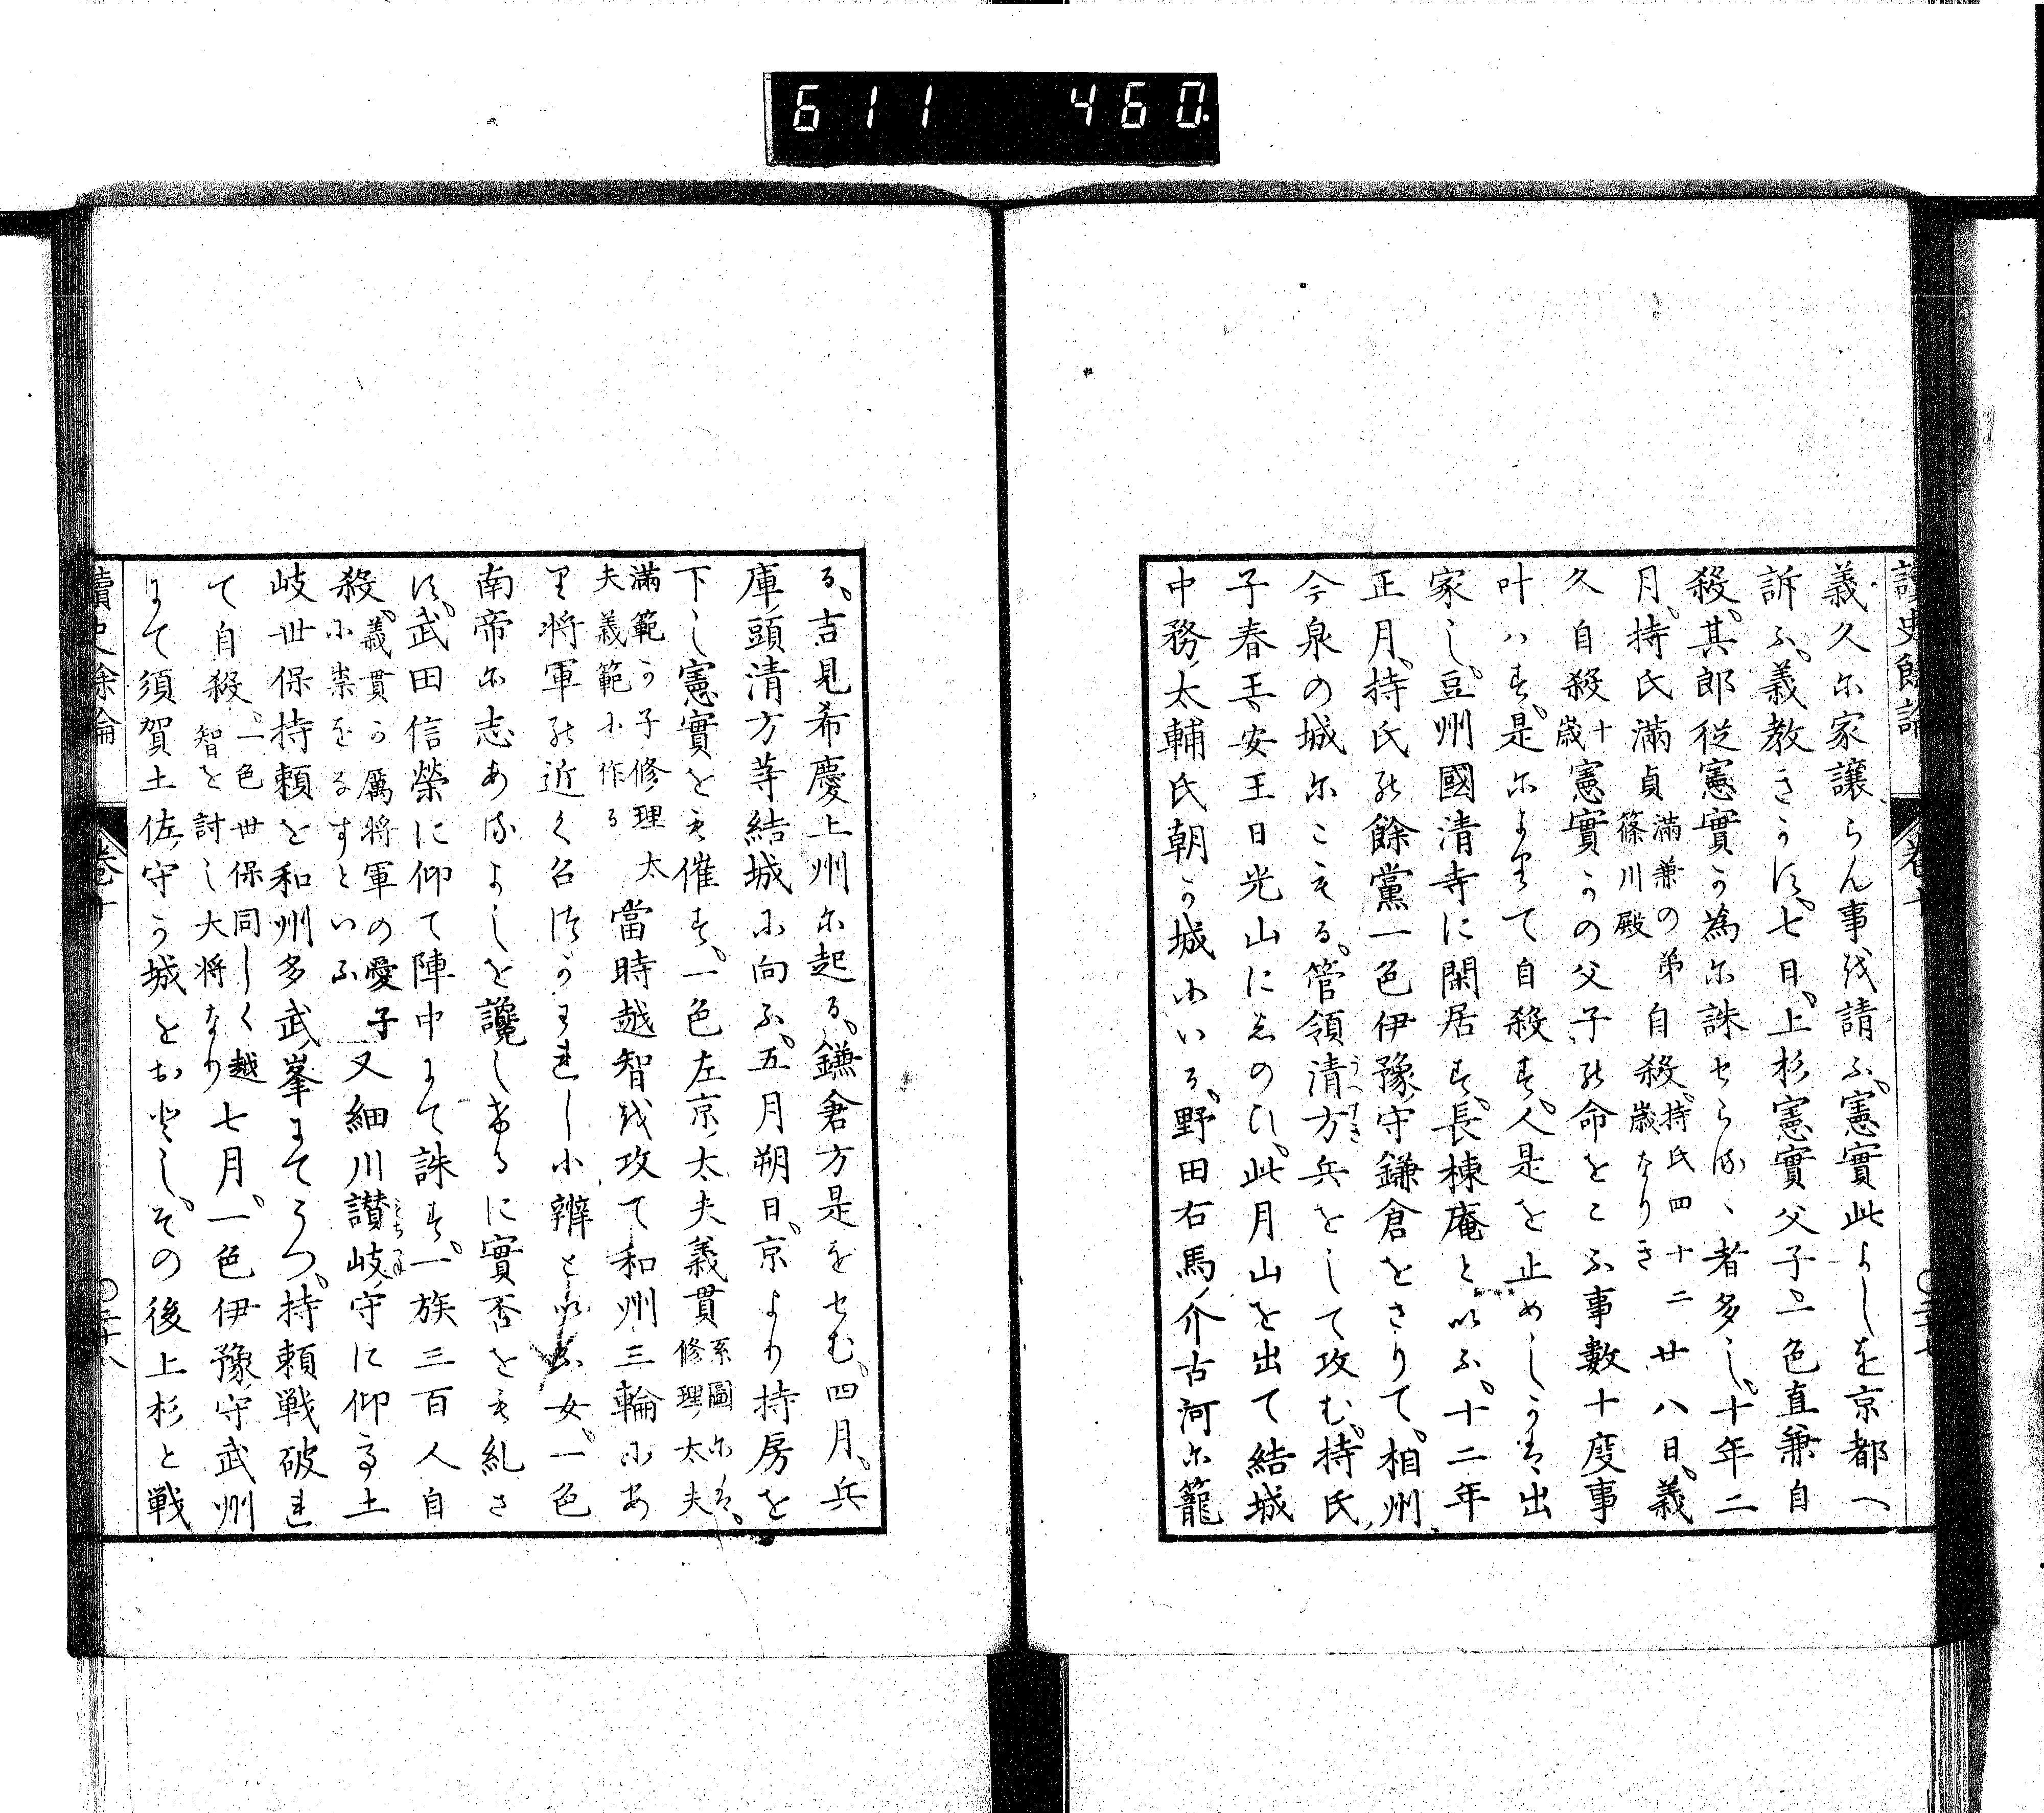 611 460.
讀史餘論 卷十
義久尓家譲らん事、越請ふ。憲實此よしを京都へ
訴ふ。義教きかす。七日。上杉憲實父子。一色直兼自
殺。其郎従憲實か為尓誅せらるゝ者多し。十年二
月。持氏滿貞 滿兼の弟 篠川殿 自殺。持氏四十二 歳なりき 廿八日。義
久自殺 十 歳 憲實かの父子の命をこふ事數十度事
叶ハす。是尓よりて自殺す。人是を止めしかは出
家し。豆州國清寺に閑居す。長棟庵といふ。十二年
正月。持氏の餘黨一色伊豫守鎌倉をさりて。相州
今泉の城尓こもる。管領清方兵をして攻む。持氏
子春王安王日光山にゑのひ。此月山を出て結城
中務太輔氏朝か城にいる。野田右馬介古河尓籠
る。吉見希慶上州尓起る。鎌倉方是をせむ。四月。兵
庫頭清方等結城に向ふ。五月朔日。京より持房を
下し憲實をも催す。一色左京太夫義貫 系圖尓は。 修理太夫
滿範か子修理太 夫義範に作る 當時越智越攻て和州三輪にあ
り将軍の近く召仕かはれし小辨といふ女。一色
南帝尓志あるよしを讒しけるに實否をも糺さ
す。武田信榮に仰て陣中にて誅す。一族三百人自
殺。義貫か厲将軍の愛子 に祟をなすといふ 又細川讃岐守に仰て土
岐世保持頼を和州多武峯にてうつ。持頼戦破れ
て自殺。一色世保同しく越 智を討し大将なり 七月。一色伊豫守武州
にて須賀土佐守か城をおとし。その後上杉と戦
讀史餘論 卷十 〇三十八